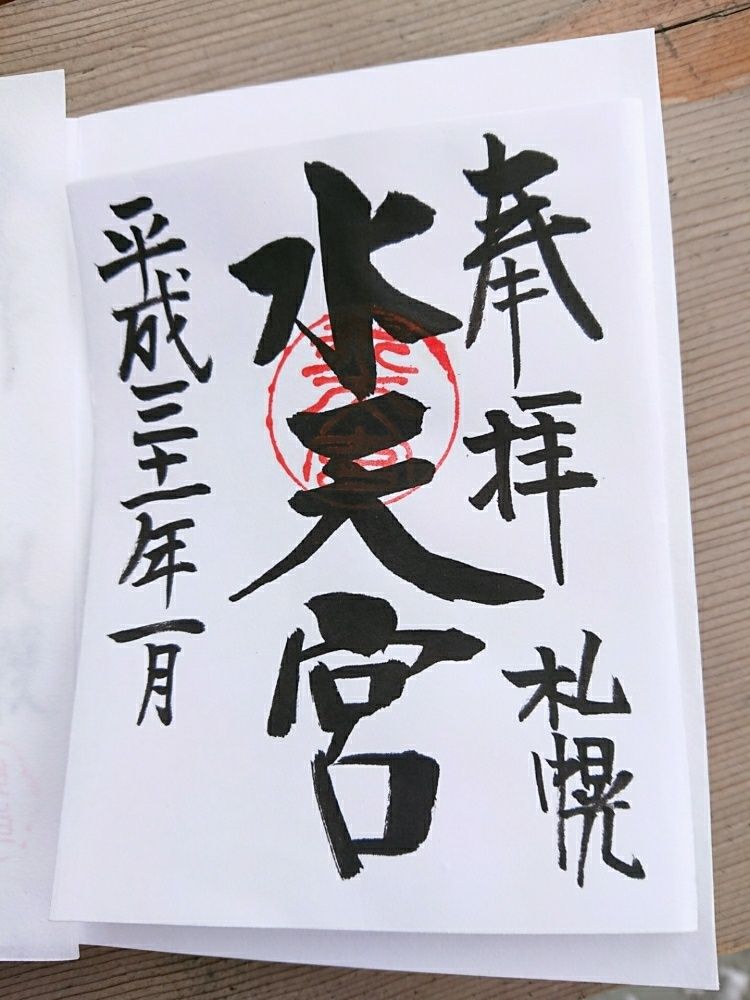 奉拝
札幌
水天宮
平成三十一年一月